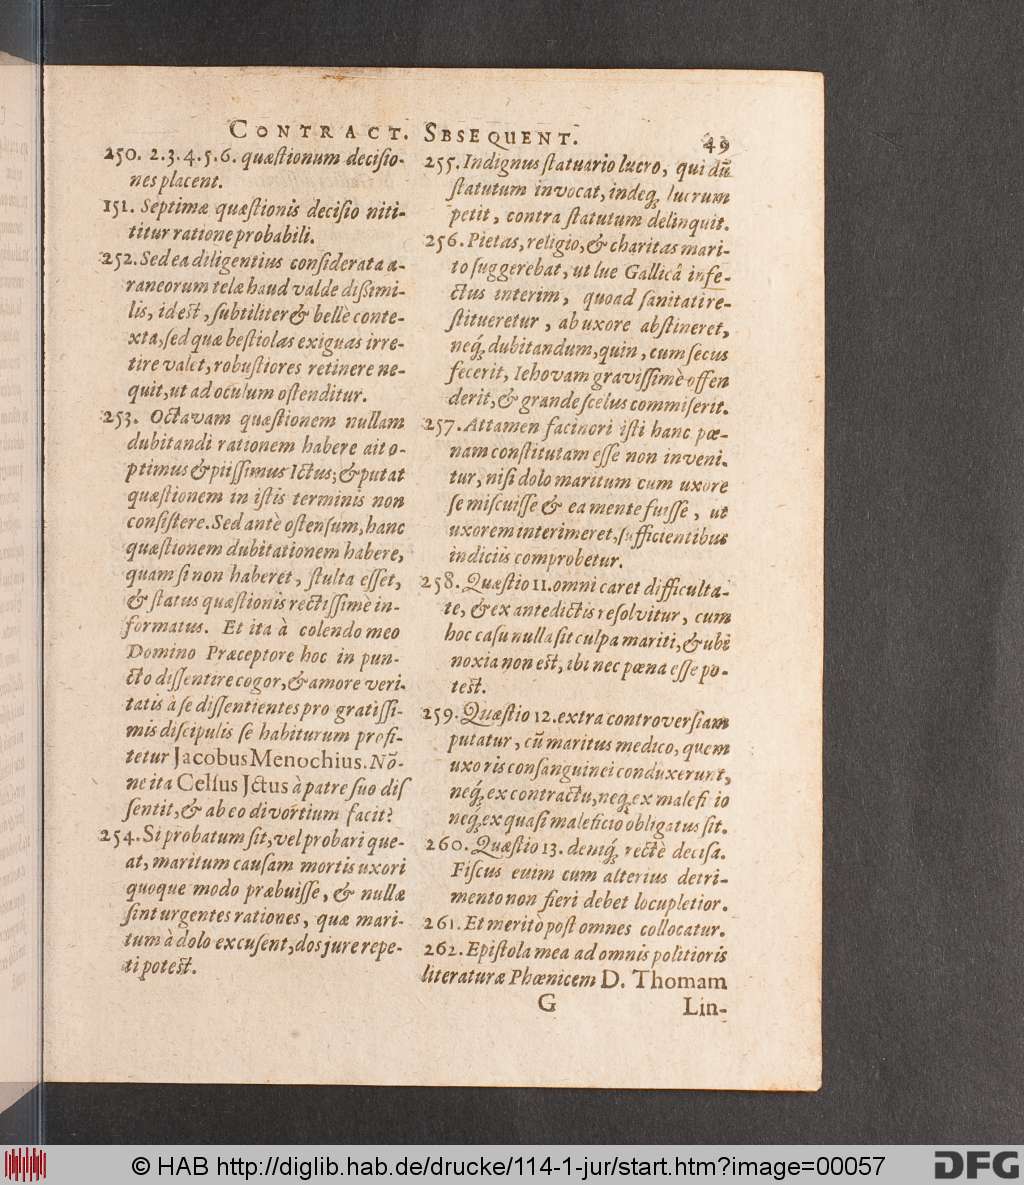 CONTRACT. SBSEQUENT. 49
250. 2.3.4.5.6. quæstionum decisio-
nes placent.
151. Septimæ quæstionis decisio niti-
titur ratione probabili.
252. Sed ea diligentius considerata a-
raneorum telæ haud valde dißimi-
lis, id est, subtiliter & bellè conte-
xta, sed quæ bestiolas exiguas irre-
tire valet, robustiores retinere ne-
quit, ut ad oculum ostenditur.
253. Octavam quæstionem nullam
dubitandi rationem habere ait o-
ptimus & piissimus Ictus; & putat
quæstionem in istis terminis non
consistere. Sed antè ostensum, hanc
quæstionem dubitationem habere,
quam si non haberet, stulta esset,
& status quæstionis rectissimè in-
formatus. Et ita à colendo meo
Domino Præceptore hoc in pun-
cto dissentire cogor, & amore veri-
tatis à se dissentientes pro gratissi-
mis discipulis se habiturum profi-
tetur Jacobus Menochius. Nõ-
ne ita Celsus Jctus à patre suo dis
sentit, & ab eo divortium facit?
254. Si probatum sit, vel probari que-
at, maritum causam mortis uxori
quoque modo præbuisse, & nullæ
sint urgentes rationes, quæ mari-
tum à dolo excusent, dos jure repe-
ti potest.
255. Indignus statuario lucro, qui dũ
statutum invocat, indeq́; lucrum
petit, contra statutum delinquit.
256. Pietas, religio, & charitas mari-
to suggerebat, ut lue Gallicâ infe-
ctus interim, quoad sanitati re-
stitueretur, ab uxore abstineret,
neq́; dubitandum, quin, cum secus
fecerit, Iehovam gravissimè offen
derit, & grande scelus commiserit.
257. Attamen facinori isti hanc pœ-
nam constitutam esse non inveni-
tur, nisi dolo maritum cum uxore
se miscuisse & ea mente fuisse, ut
uxorem interimeret, sufficientibus
indiciis comprobetur.
258. Quæstio 11. omni caret difficulta-
te, & ex antedictis resolvitur, cum
hoc casu nulla sit culpa mariti, & ubi
noxia non est, ibi nec pœna esse po-
test.
259. Quæstio 12. extra controversiam
putatur, cũ maritus medico, quem
uxoris consanguinei conduxerunt,
neq́; ex contractu, neq; ex malefi io
neq; ex quasi maleficio obligatus sit.
260. Quæstio 13. deniq́; rectè decisa.
Fiscus euim cum alterius detri-
mento non fieri debet locupletior.
261. Et meritò post omnes collocatur.
262. Epistola mea ad omnis politioris
literaturæ Phœnicem D. Thomam
G Lin-
© HAB http://diglib.hab.de/drucke/114-1-jur/start.htm?image=00057 DFG